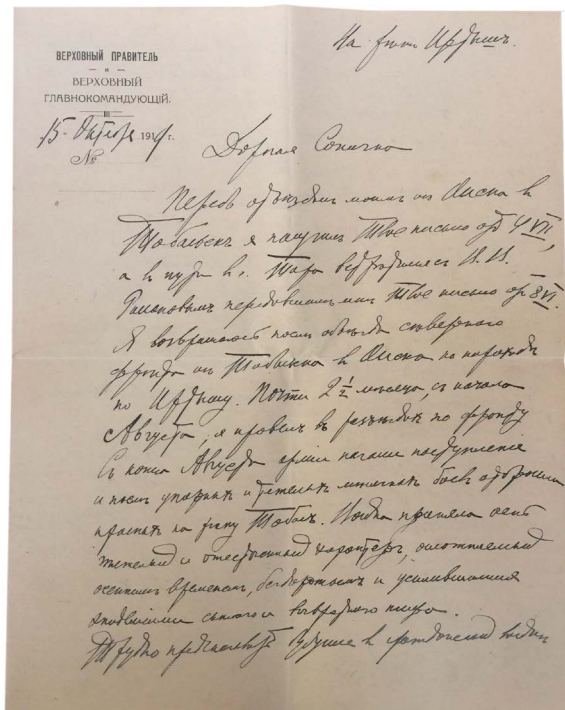 На рѣкѣ Иртышъ.
ВЕРХОВНЫЙ ПРАВИТЕЛЬ
И
ВЕРХОВНЫЙ
ГЛАВНОКОМАНДУЮЩІЙ.
15 Октября 1919 г.
№
Дорогая Сонечка
Передъ отъѣздомъ моимъ изъ Омска в
Тобольскъ я получилъ Твое письмо от 4 VII,
а в пути в г. Тара встрѣтился с И. И.
передавшимъ мнѣ Твое письмо от 8 VI.
Я возвращаюсь послѣ объѣзда сѣвернаго
фронта из Тобольска в Омскъ на пароходѣ
по Иртышу. Почти 2 ½ мѣсяца, съ начала
Августа, я провелъ в разъѣздахъ по фронту
Съ конца Августа арміи начали наступленіе
и послѣ упорныхъ и тяжелыхъ боевъ отбросили
красныхъ на рѣку Тоболъ. Война приняла очень
и ожесточенный характеръ,
осеннимъ временемъ, бездорожьемъ и усилившимися
эпидеміями сыпного и возвратнаго тифа.
Трудно